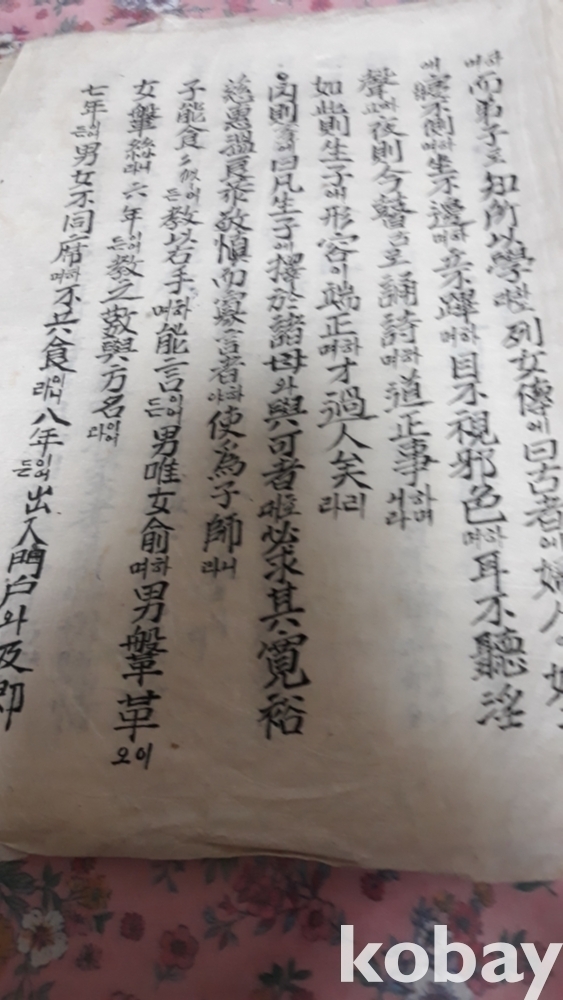 하며而弟子로知所以學列女傳에曰古者에婦人이
에寢不側하며坐不邊하며不蹕하며目不視邪色하며耳不聽淫
聲하고夜則今瞽으로誦詩하며道正事하며
如此則生子에形容이端正하며才過人矣리라
○內則에曰凡生子에擇於諸母와與可者必求其寬裕
慈惠溫良恭敬愼而寡言者하야使爲子師니라
子能食々이어든敎以右手하며能言이어든男唯女俞하며男鞶革이오
女鞶絲니라六年이어든敎之數與方名이라
七年이어든男女不同席하며不共食이니라八年이어든出入門戶와及卽
kobay